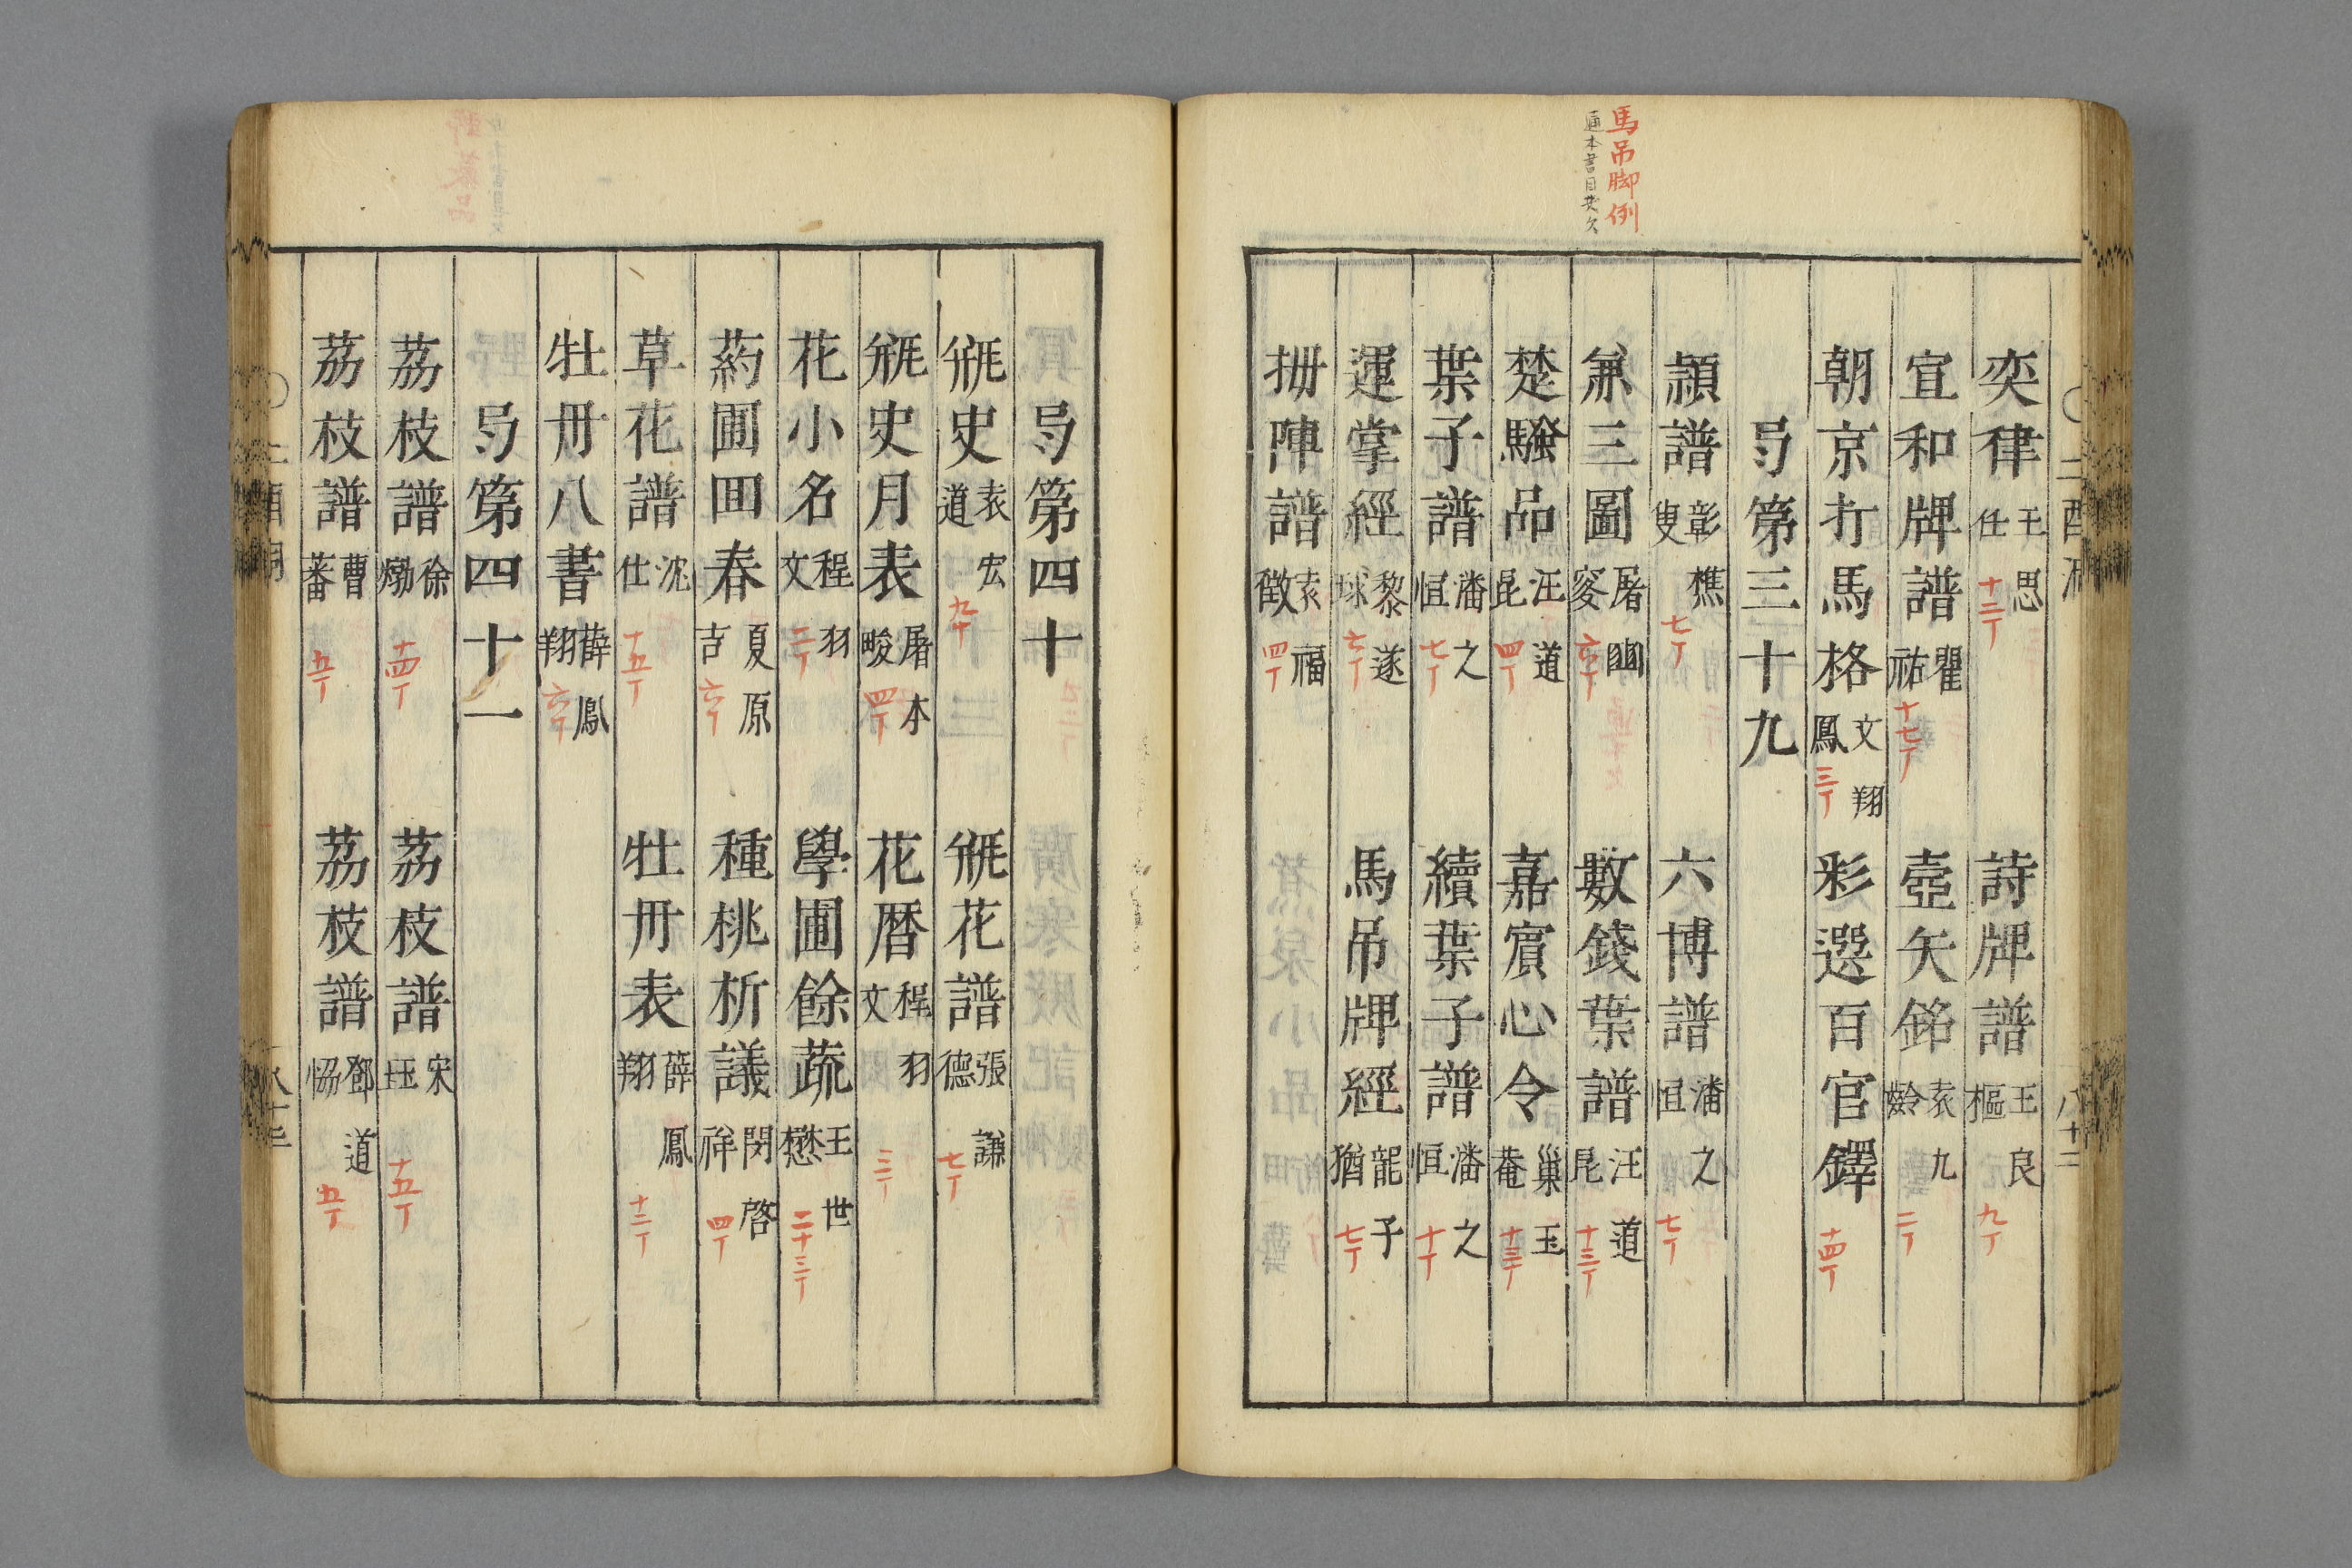 馬吊脚例
奕律 王思任 十二丁 詩牌譜 王良樞 九丁
宣和牌譜 瞿祐 十七丁 壺矢銘 袁九齡 二丁
朝京打馬格 文翔鳳 三丁 彩選百官鐸 十四丁
弓第三十九
頴譜 彰樵叟 七丁 六博譜 潘之恒 七丁
兼三圖 屠豳叜 六丁 數錢葉譜 汪道昆 十三丁
楚騷品 汪道昆 四丁 嘉賔心令 巢玉菴 十三丁
葉子譜 潘之恒 七丁 續葉子譜 潘之恒 十丁
運掌經 黎遂球 七丁 馬吊牌經 龍子猶 七丁
拇陣譜 袁福徵 四丁
八十二
弓第四十
缾史 袁宏道 九丁 缾花譜 張謙德 七丁
缾史月表 屠本畯 四丁 花曆 程羽文 三丁
花小名 程羽文 二丁 學圃餘蔬 王世懋 二十三丁
葯圃田春 夏原吉 六丁 種桃析議 閔啓祥 四丁
草花譜 沈仕 十五丁 牡丹表 薛鳳翔 十二丁
牡丹八書 薛鳳翔 六丁
弓第四十一
荔枝譜 徐𤊹 十四丁 荔枝譜 宋珏 十五丁
荔枝譜 曹蕃 五丁 荔枝譜 鄧道協 五丁